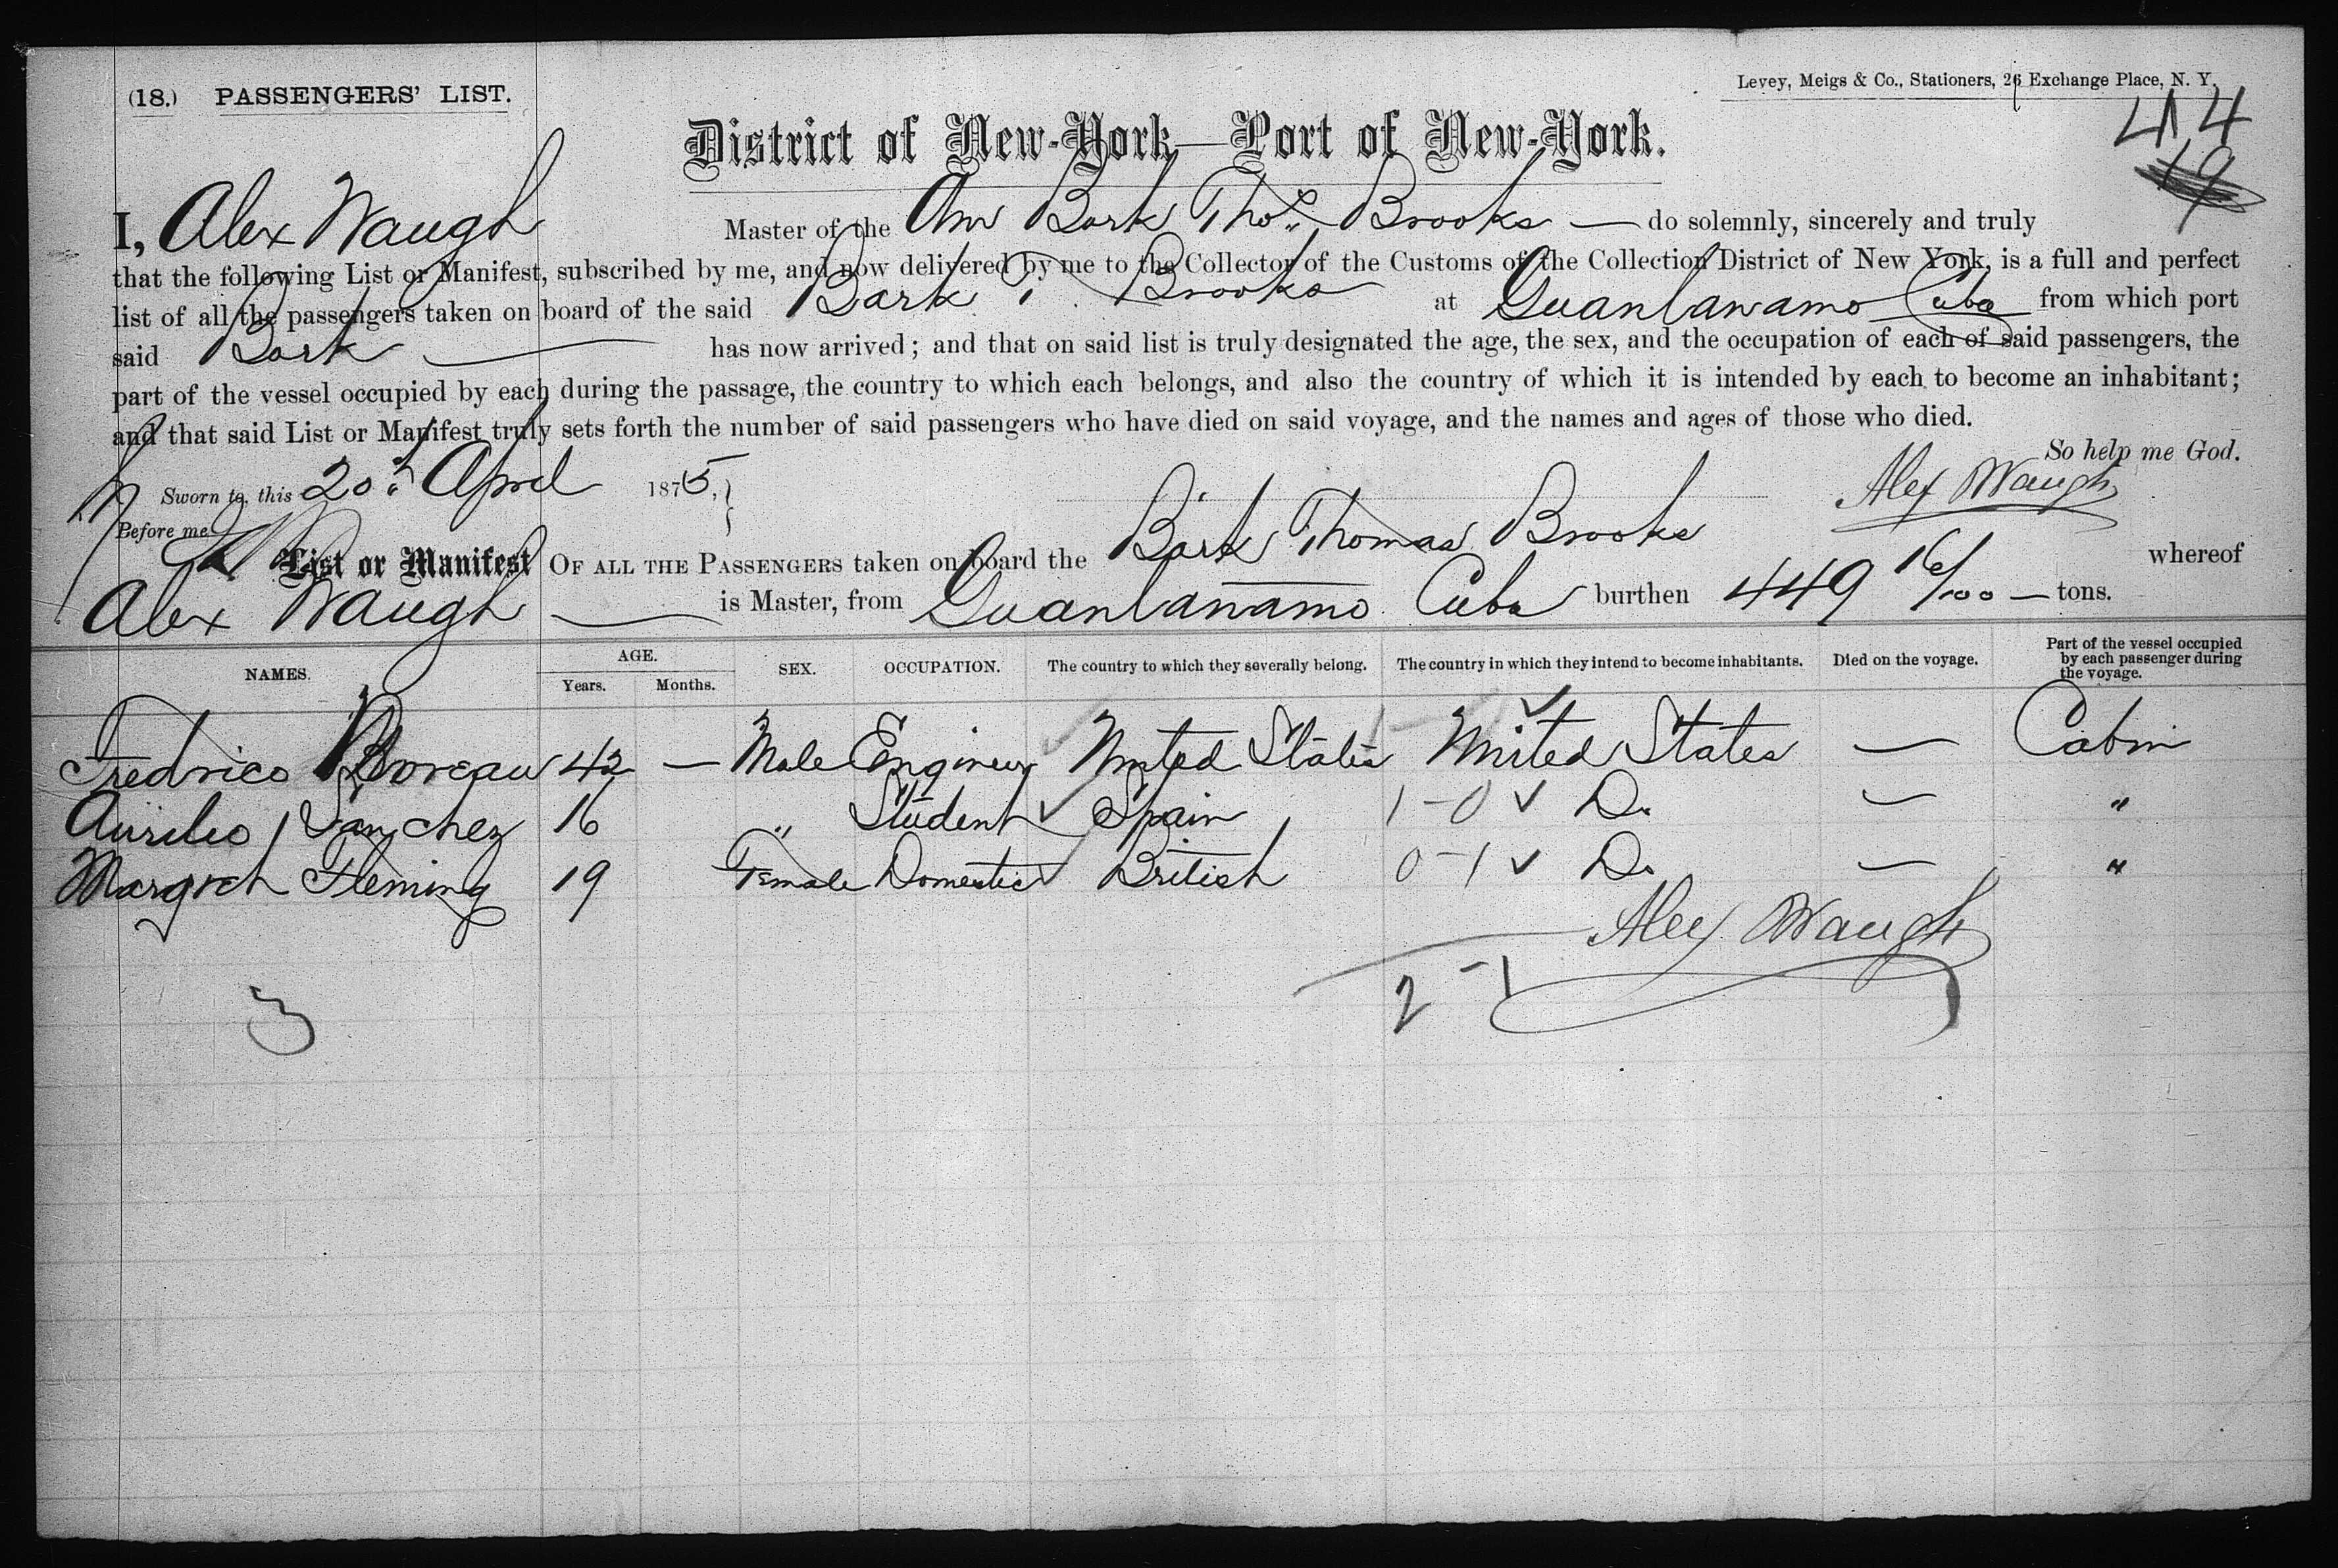 (18.) PASSENGERS' LIST.
Levey, Meigs & Co., Stationers, 26 Exchange Place, N. Y.
414
19
District of New-York—Port of New-York.
I, Alex Waugh Master of the Am Bark Thos. Brooks — do solemnly, sincerely and truly
that the following List or Manifest, subscribed by me, and now delivered by me to the Collector of the Customs of the Collection District of New York, is a full and perfect
list of all the passengers taken on board of the said Bark T. Brooks at Guantanamo Cuba from which port
said Bark — has now arrived; and that on said list is truly designated the age, the sex, and the occupation of each of said passengers, the
part of the vessel occupied by each during the passage, the country to which each belongs, and also the country of which it is intended by each to become an inhabitant;
and that said List or Manifest truly sets forth the number of said passengers who have died on said voyage, and the names and ages of those who died.
So help me God.
Sworn to, this 20th April 1875, Alex Waugh
Before me
List or Manifest OF ALL THE PASSENGERS taken on board the Bark Thomas Brooks whereof
Alex Waugh — is Master, from Guantanamo Cuba burthen 449 16/100 — tons.
NAMES. AGE. Years. Months. SEX. OCCUPATION. The country to which they severally belong. The country in which they intend to become inhabitants. Died on the voyage. Part of the vessel occupied by each passenger during the voyage.
Fredrico 42 — Male Engineer United States United States — Cabin
Aurelio Sanchez 16 " Student Spain 1-0 ✓ Do. — "
Margret Fleming 19 Female Domestic British 0-1 ✓ Do. — "
Alex Waugh
2-1
3